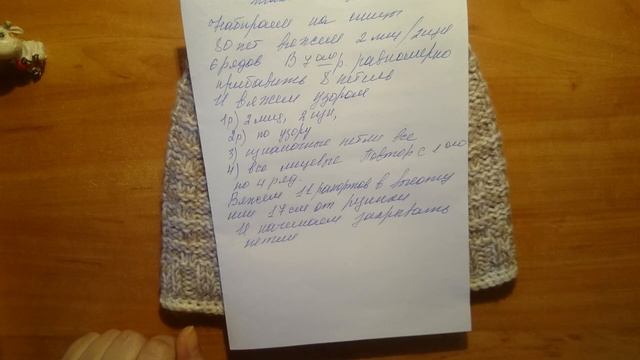 Набираем на спицы
80 пет вяжем 2 лиц/2изн
6 рядов В 7 ом р равномерно
прибавить 8 петель
И вяжем узором
1р) 2 лиц, 2 изн,
2р) по узору
3) изнаночные петли все
4) все лицевые Повтор с 1 ого
по 4 ряд.
Вяжем 11 рапортов в высоту
или 17 см от резинки
И начинаем закрывать
петли